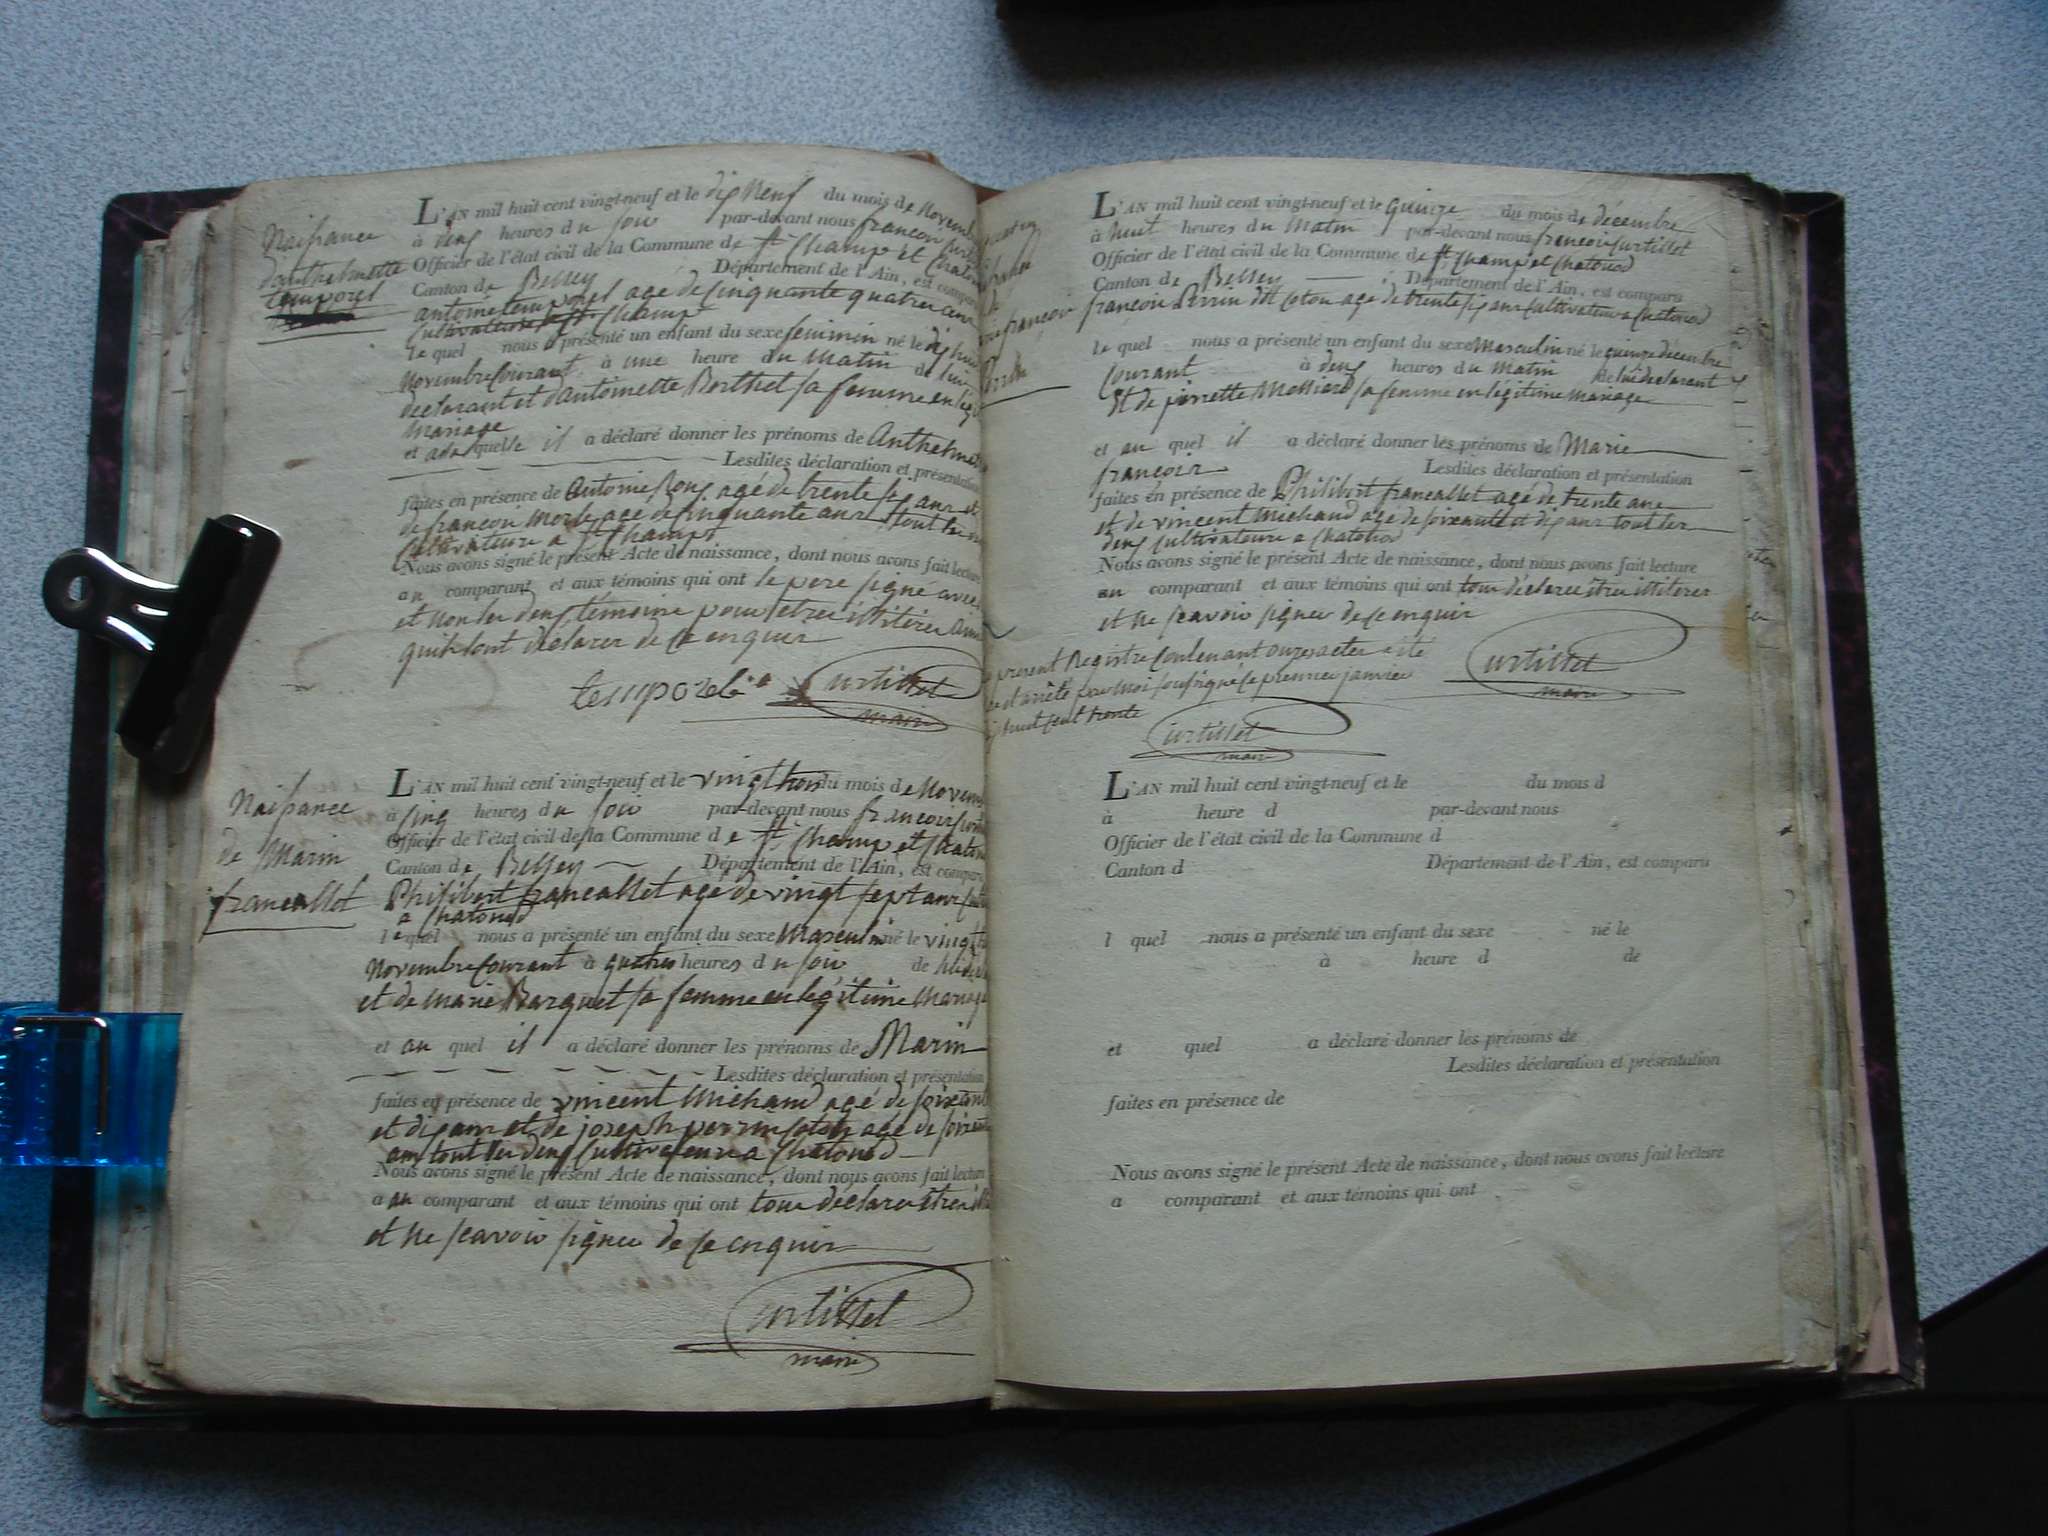 Naissance
danthelmette
temporel
L'AN mil huit cent vingt-neuf et le dix neuf du mois de Novemb
à deux heures du soir par-devant nous françois Curtil
Officier de l'état civil de la Commune de St Champ et Chaton
Canton de Belley Département de l'Ain, est comparu
antoine temporel agé de Cinquante quatre ans
Cultivateur St Champ
le quel nous a présenté un enfant du sexe feminin né le dix huit
Novembre Courant à une heure du Matin de lui
declarant et dantoinette Berthet sa femme en leg
Mariage
et a la quelle il a déclaré donner les prénoms de Anthelme
Lesdites déclaration et présentation
faites en présence de Antoine Roux agé de trente six ans et
de françois Morle agé de cinquante ans tout les
Cultivateurs a St Champ
Nous avons signé le présent Acte de naissance, dont nous avons fait lecture
au comparant et aux témoins qui ont le pere signé avec
et Non les deux témoins pour etre illitérés
quils ont déclarer de ce enquis
temporel
Curtillet
maire
Naissance
de Marin
francallet
L'AN mil huit cent vingt-neuf et le vingt trois du mois de Novem
à Cinq heures du soir par-devant nous françois Curti
Officier de l'état civil de la Commune de St Champ et Chaton
Canton de Belley Département de l'Ain, est comparu
Philibert francallet agé de vingt sept ans Cult
a Chatonod
le quel nous a présenté un enfant du sexe Masculin né le vingt
Novembre Courant à quatre heures du soir de
et de Marie Barquet sa femme en légitime Mariage
et au quel il a déclaré donner les prénoms de Marin
Lesdites déclaration et présentation
faites en présence de vincent Michaud agé de soixante
et dix ans et de joseph perrin Coton agé de soixante
ans tout les deux Cultivateurs a Chatonod
Nous avons signé le présent Acte de naissance, dont nous avons fait lecture
a au comparant et aux témoins qui ont tous déclaré être
et ne scavoir signer de ce enquis
Curtillet
maire
françois
Perrin
L'AN mil huit cent vingt-neuf et le Quinze du mois de décembre
à huit heures du Matin par-devant nous françois Curtillet
Officier de l'état civil de la Commune de St Champ et Chatonod
Canton de Belley Département de l'Ain, est comparu
françois Perrin dit Coton agé de trente six ans Cultivateur a Chatonod
le quel nous a présenté un enfant du sexe Masculin né le quinze décembre
Courant à deux heures du Matin de lui declarant
Et de pierrette Massiard sa femme en légitime Mariage
et au quel il a déclaré donner les prénoms de Marie
françois
Lesdites déclaration et présentation
faites en présence de Philibert francallet agé de trente ans
et de vincent Michaud agé de soixante et dix ans tout les
deux Cultivateurs a Chatonod
Nous avons signé le présent Acte de naissance, dont nous avons fait lecture
au comparant et aux témoins qui ont tous déclaré être illiterés
et ne scavoir signer de ce enquis
Curtillet
maire
present Registre Contenant onze actes a été
et arrêté par moi soussigné le premier janvier
huit cent trente
Curtillet
maire
L'AN mil huit cent vingt-neuf et le du mois d
à heure d par-devant nous
Officier de l'état civil de la Commune d
Canton d Département de l'Ain, est comparu
l quel nous a présenté un enfant du sexe né le
à heure d de
et quel a déclaré donner les prénoms de
Lesdites déclaration et présentation
faites en présence de
Nous avons signé le présent Acte de naissance, dont nous avons fait lecture
a comparant et aux témoins qui ont